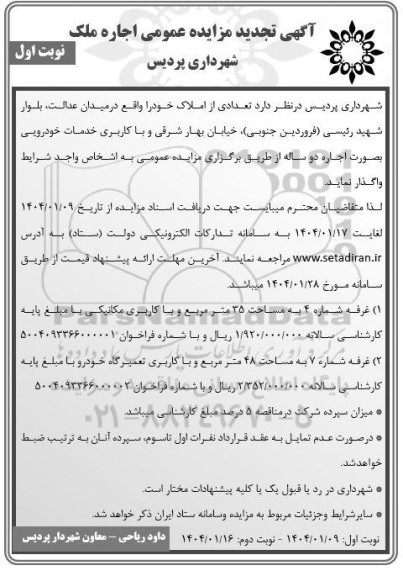 آگهی تجدید مزایده عمومی اجاره ملک
شهرداری پردیس
نوبت اول
شهرداری پردیس درنظر دارد تعدادی از املاک خودرا واقع درمیدان عدالت، بلوار
شهید رئیسی (فروردین جنوبی)، خیابان بهار شرقی و با کاربری خدمات خودرویی
بصورت اجاره دو ساله از طریق برگزاری مزایده عمومی به اشخاص واجد شرایط
واگذار نماید.
لـذا متقاضیـان محتـرم میبایست جهت دریافت اسناد مزایده از تاریخ ۱۴۰۴/۰۱/۰۹
لغایت ۱۴۰۴/۰۱/۱۷ به سامانه تدارکات الکترونیکی دولت (ستاد) به آدرس
www.setadiran.ir مراجعه نمایند. آخرین مهلت ارائه پیشنهاد قیمت از طریق
سامانه مورخ ۱۴۰۴/۰۱/۲۸ میباشد.
۱) غرفه شماره ۴ به مساحت ۳۵ متر مربع و با کاربری مکانیکی با مبلغ پایه
کارشناسی سالانه ۱/۹۲۰/۰۰۰/۰۰۰ ریال و با شماره فراخوان ۵۰۰۴۰۹۳۳۶۶۰۰۰۰۰۱
۲) غرفه شماره ۷ به مساحت ۴۸ متر مربع و با کاربری تعمیرگاه خودرو با مبلغ پایه
کارشناسی سالانه ۲/۳۵۲/۰۰۰/۰۰۰ ریال و با شماره فراخوان ۵۰۰۴۰۹۳۳۶۶۰۰۰۰۰۲
* میزان سپرده شرکت درمناقصه ۵ درصد مبلغ کارشناسی میباشد.
* درصورت عدم تمایل به عقد قرارداد نفرات اول تاسوم، سپرده آنان به ترتیب ضبط
خواهدشد.
* شهرداری در رد یا قبول یک یا کلیه پیشنهادات مختار است.
* سایرشرایط وجزئیات مربوط به مزایده وسامانه ستاد ایران ذکر خواهد شد.
نوبت اول: ۱۴۰۴/۰۱/۰۹ - نوبت دوم: ۱۴۰۴/۰۱/۱۶
داود ریاحی – معاون شهردار پردیس
ParsNamadData
۰۲۱-۸۸۳۴۹۶۷۰-۵